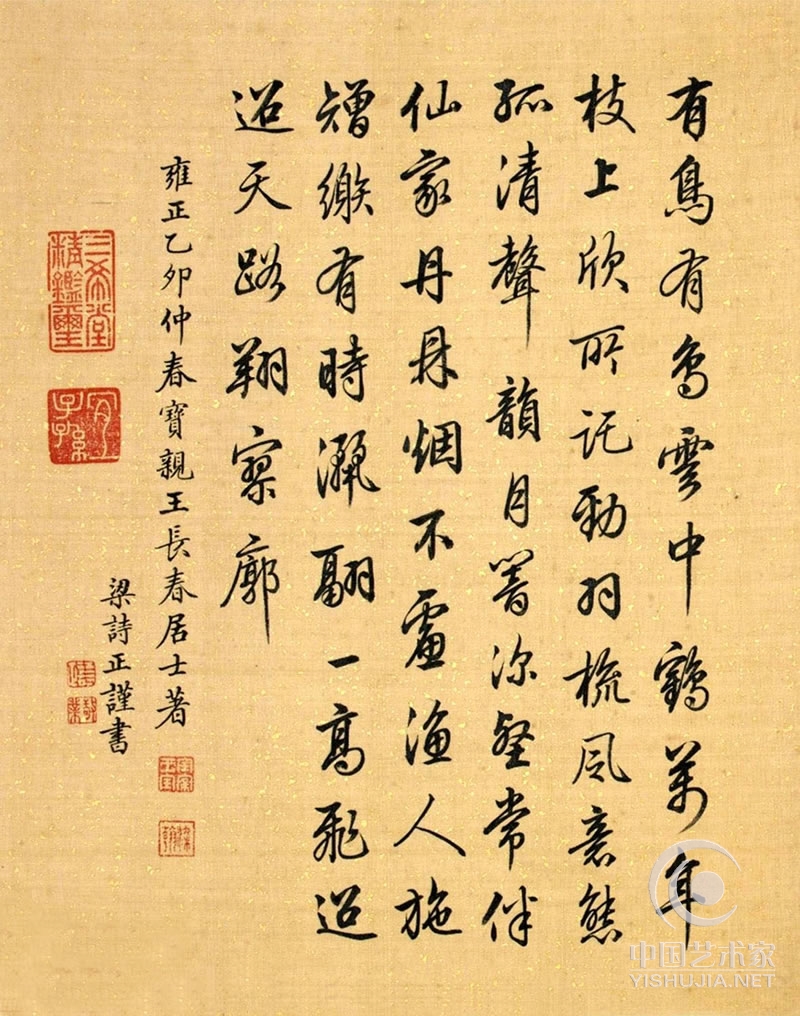 有鳥有鳥雲中鶴萬年
枝上欣所託勁羽梳風意態
孤清聲韻月深壑常伴
仙家丹鼎烟不慮漁人施
矰繳有時灑翮一高飛迢
迢天路翔寥廓
雍正乙卯仲春寶親王長春居士著
梁詩正謹書
三希堂精鑑璽
宜子孫
中国艺术家
YISHUJIA.NET